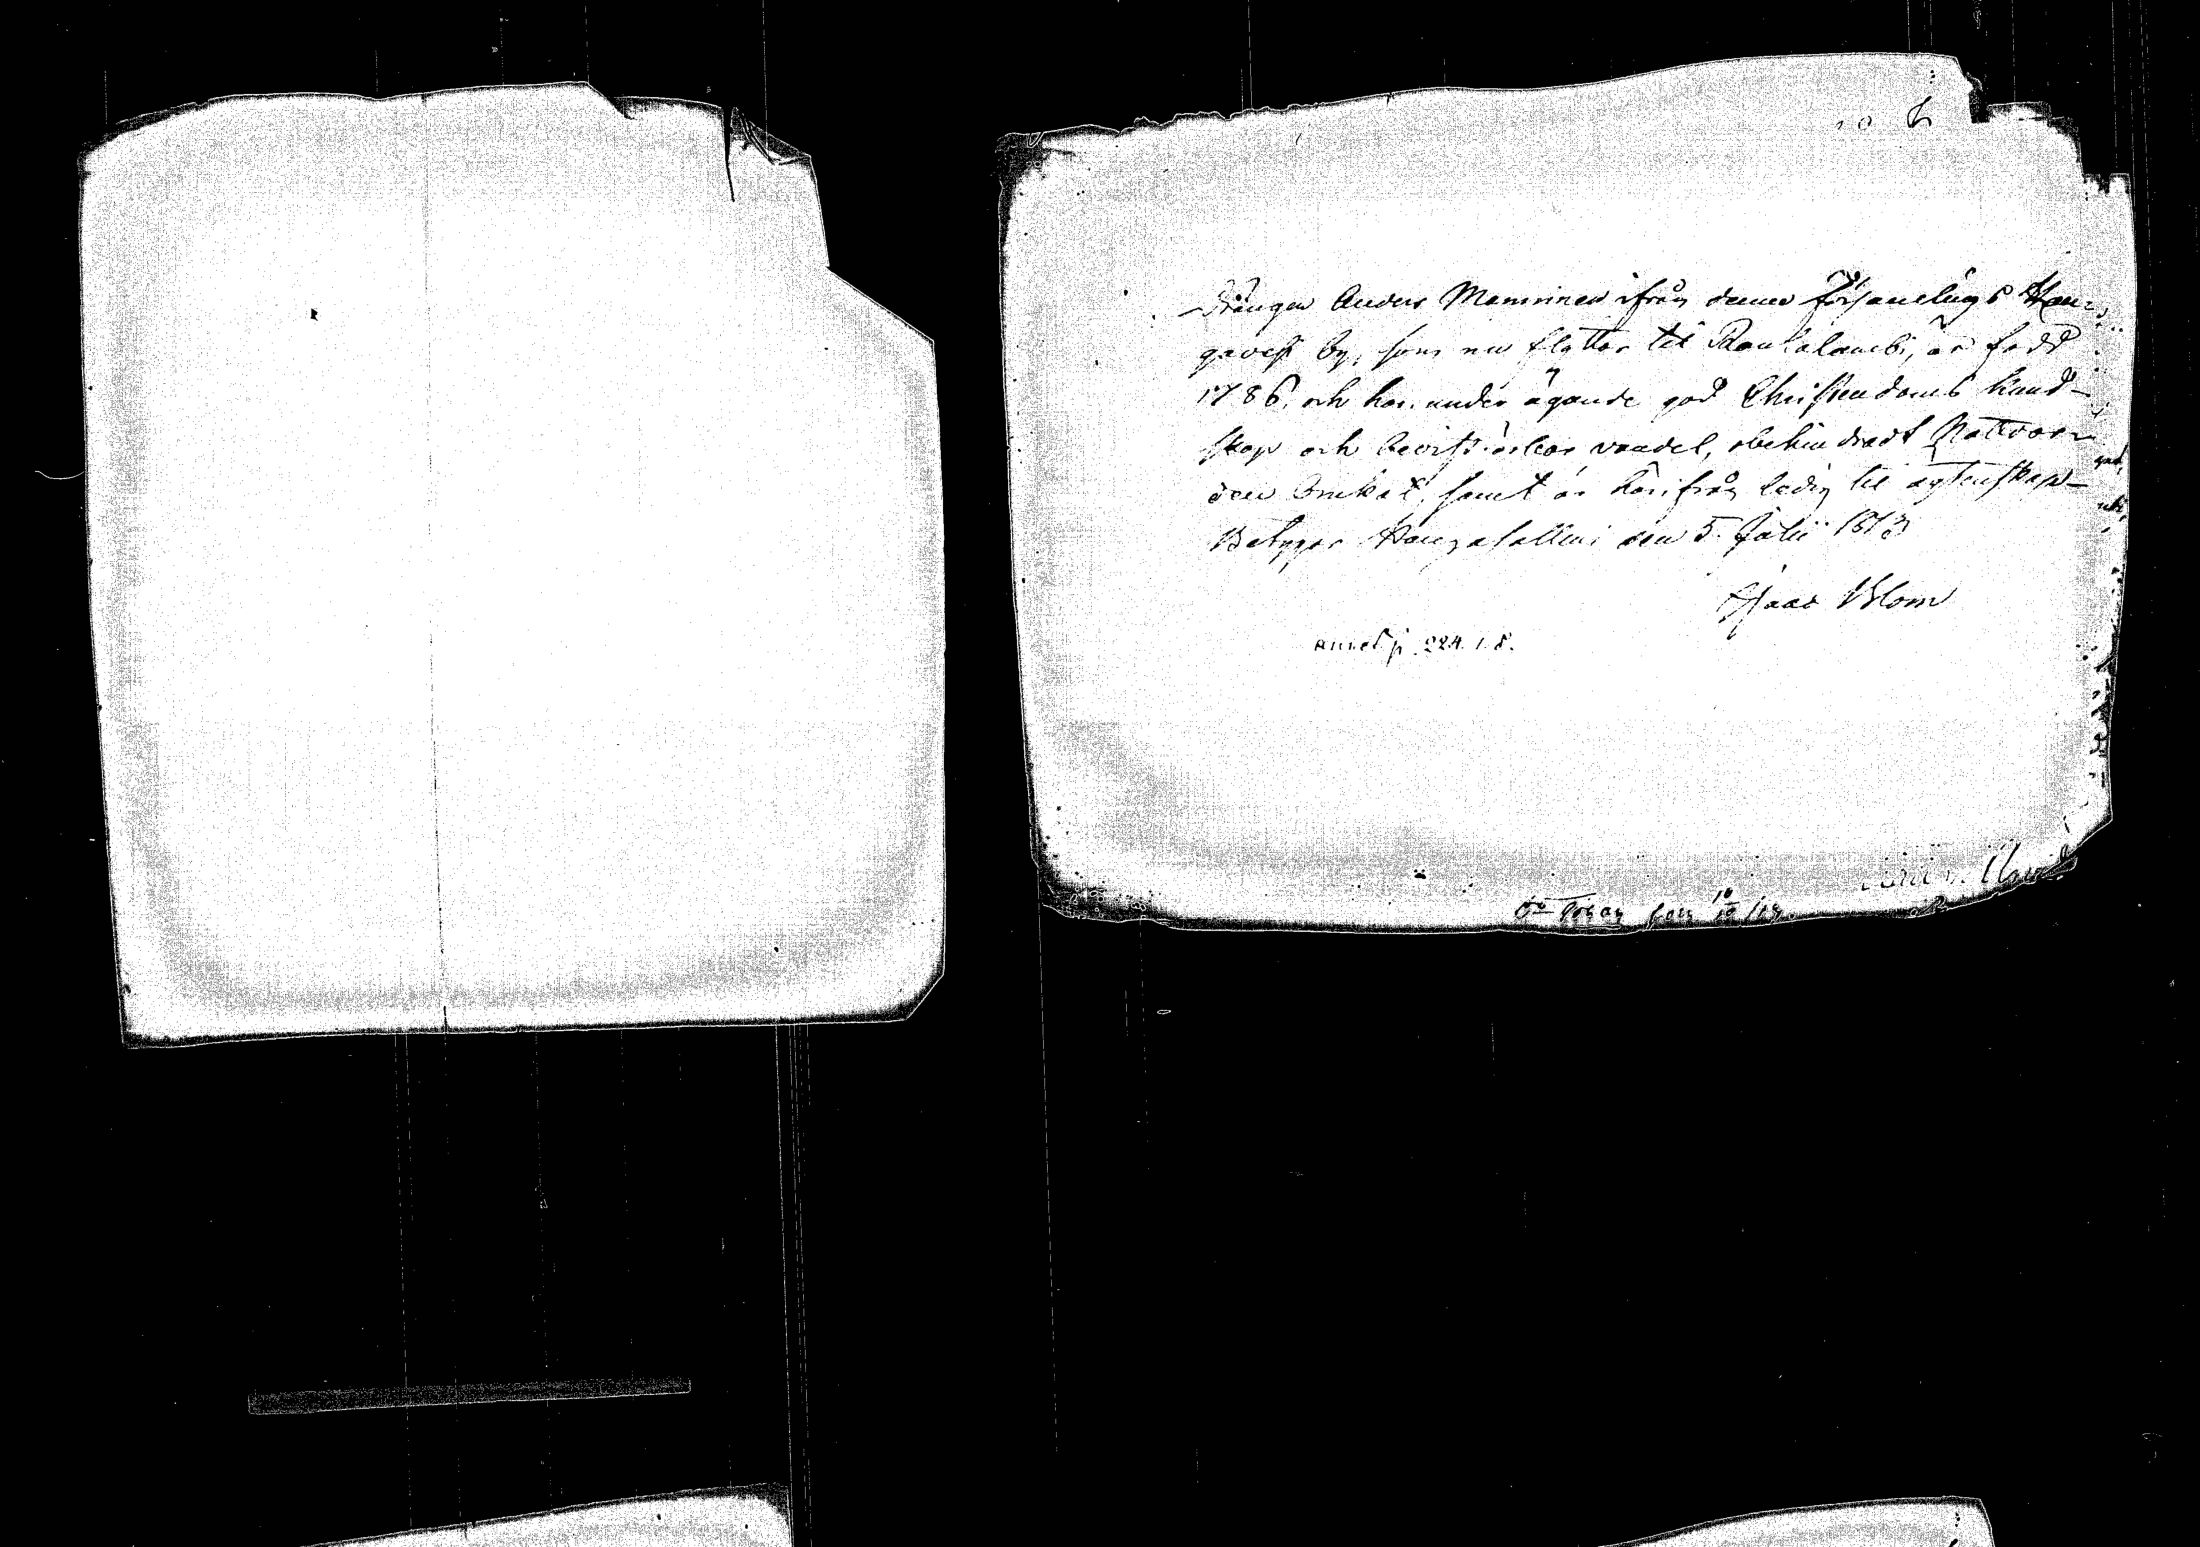 Drängen Anders Manninen ifrån denne Församlings Kan-
gavesi by, som nu flyttar till Rautalambi, är född
1786. och har under ägande god Christendoms kund-
skap och bevist ärbar vandel, obehindradt Nattvar-
den brukat, samt är härifrån ledig til ägtenskap
Betygar Kangasalliemi den 5. Julii 1813
Isaac Blom
annot p. 224. 1. 8.